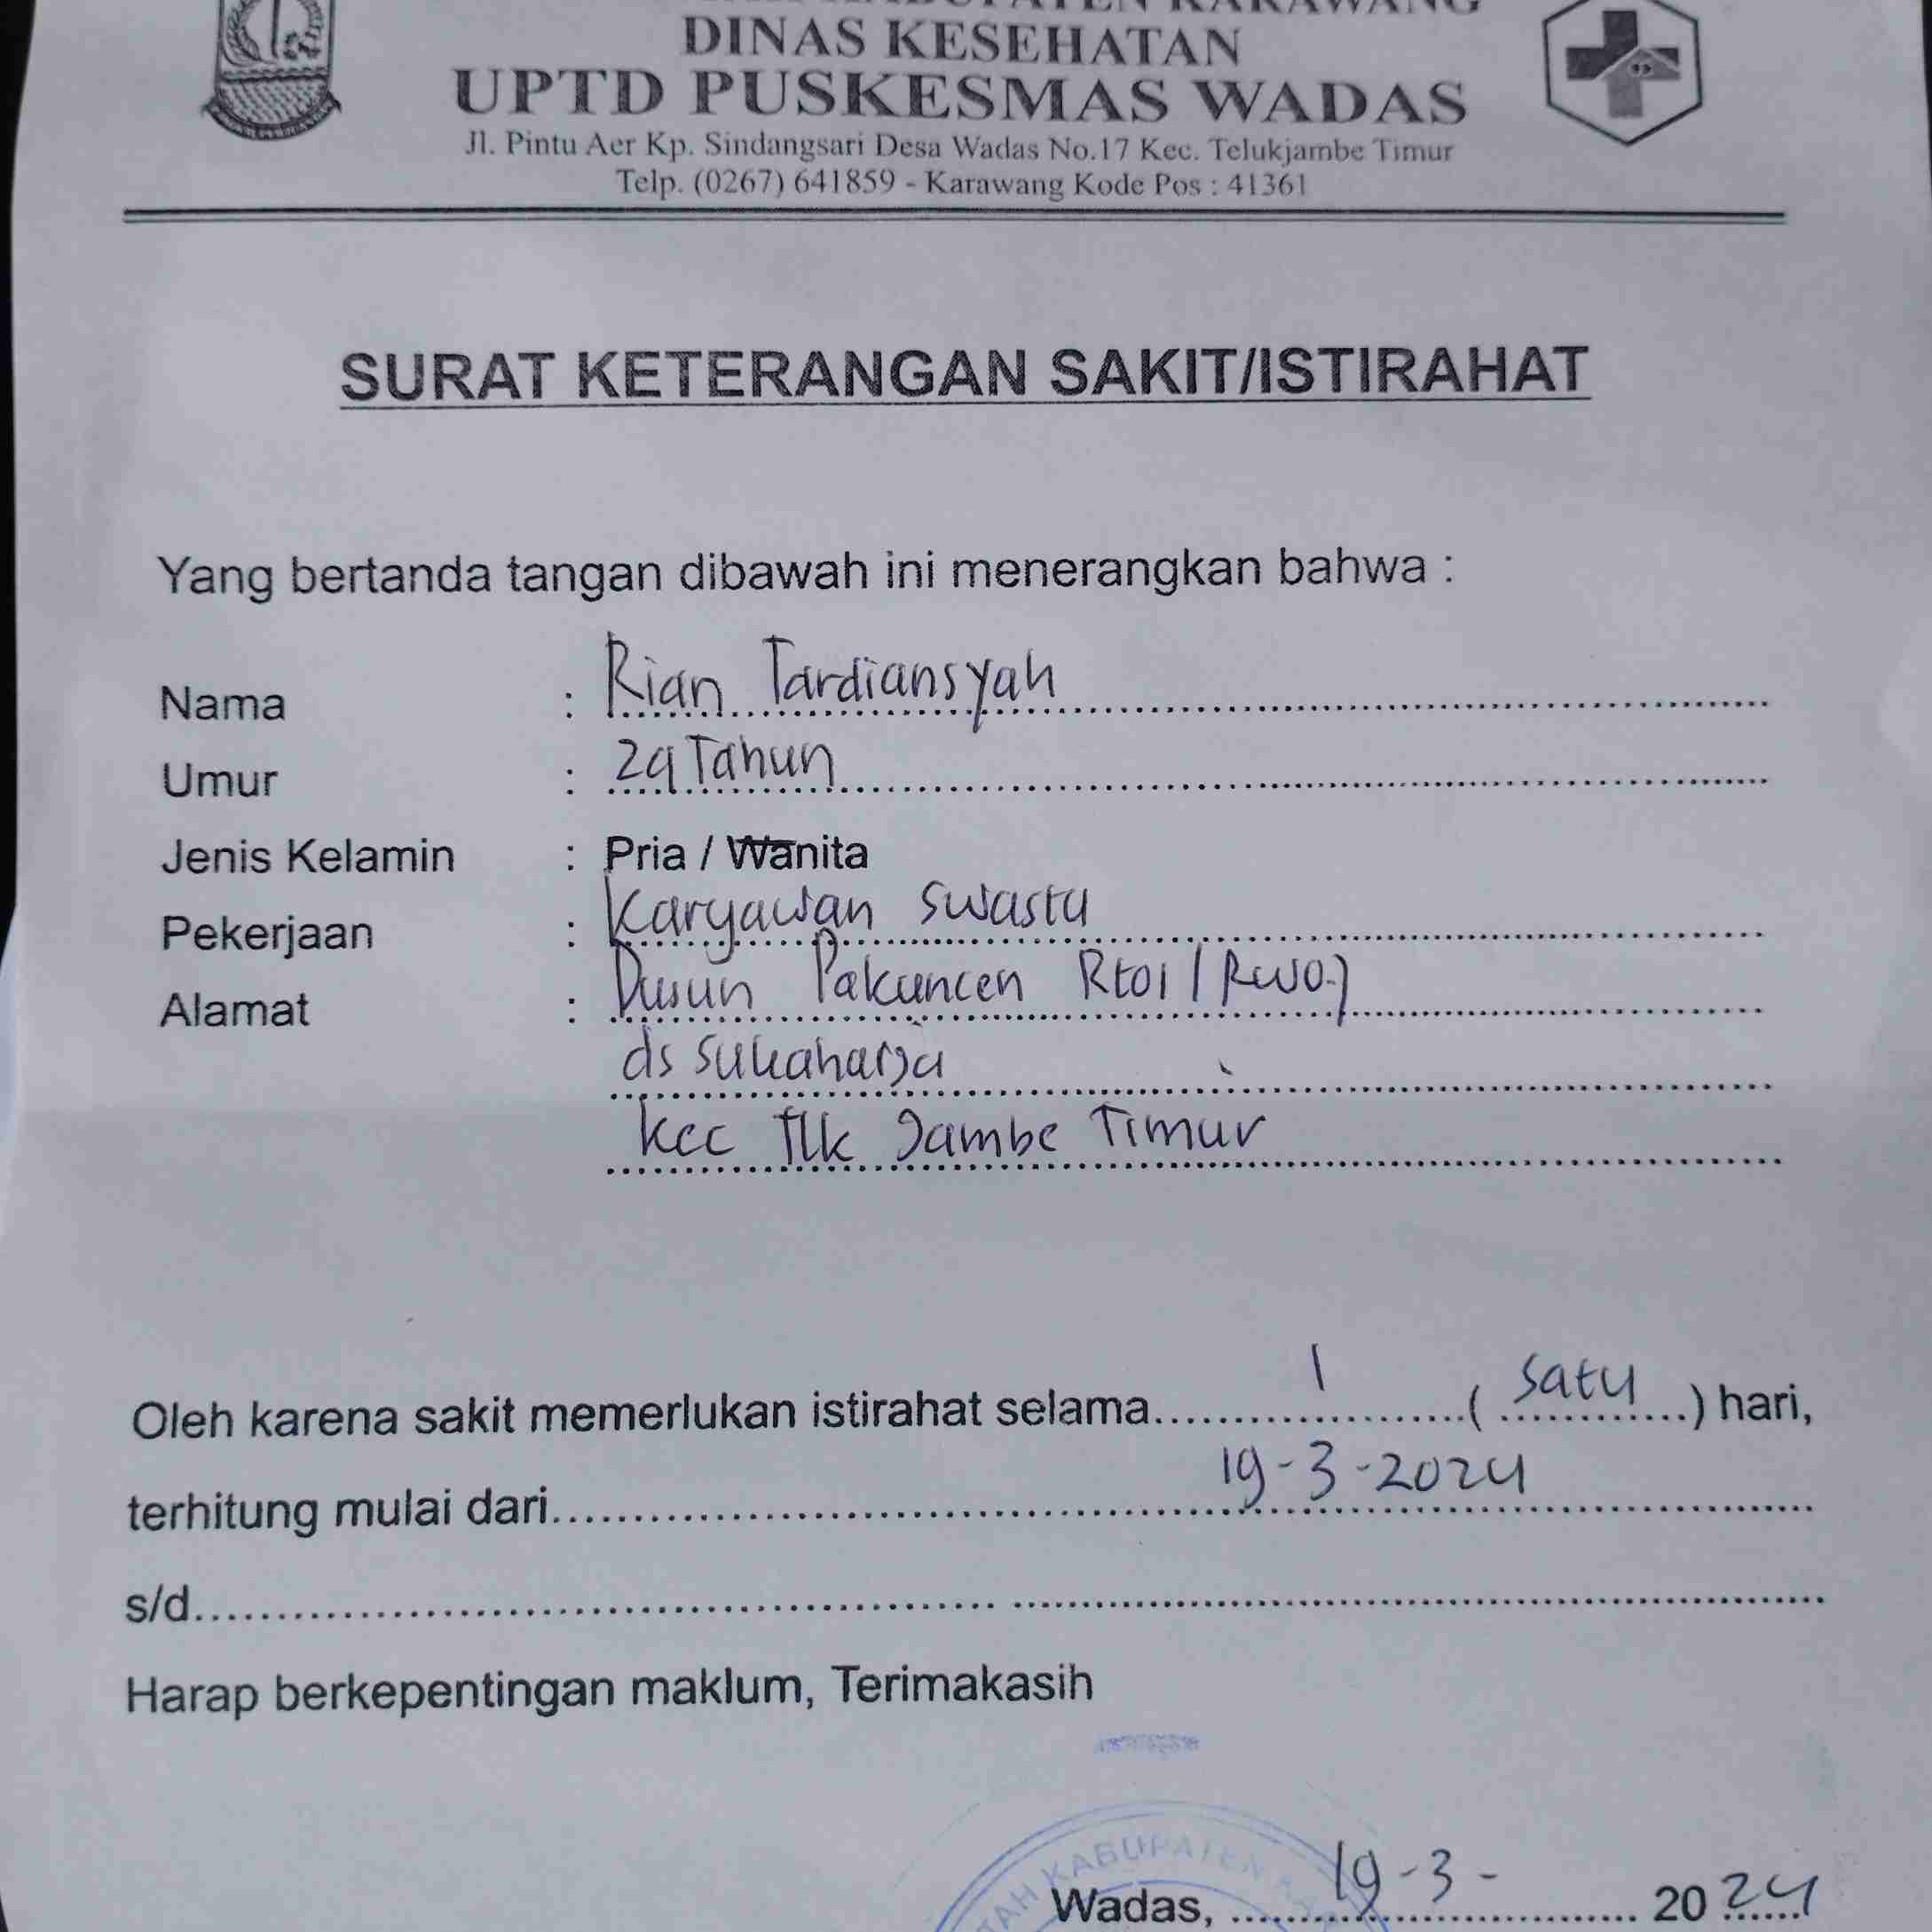 KABUPATEN KARAWANG
DINAS KESEHATAN
UPTD PUSKESMAS WADAS
Jl. Pintu Aer Kp. Sindangsari Desa Wadas No.17 Kec. Telukjambe Timur
Telp. (0267) 641859 - Karawang Kode Pos : 41361
SURAT KETERANGAN SAKIT/ISTIRAHAT
Yang bertanda tangan dibawah ini menerangkan bahwa :
Nama : Rian Tardiansyah
Umur : 29 Tahun
Jenis Kelamin : Pria / Wanita
Pekerjaan : Karyawan Swasta
Alamat : Dusun Pakuncen Rt01 / Rw07
ds Sukaharja
kec tlk Jambe Timur
Oleh karena sakit memerlukan istirahat selama 1 ( satu ) hari,
terhitung mulai dari 19-3-2024
s/d
Harap berkepentingan maklum, Terimakasih
KABUPATEN
Wadas, 19-3- 2024